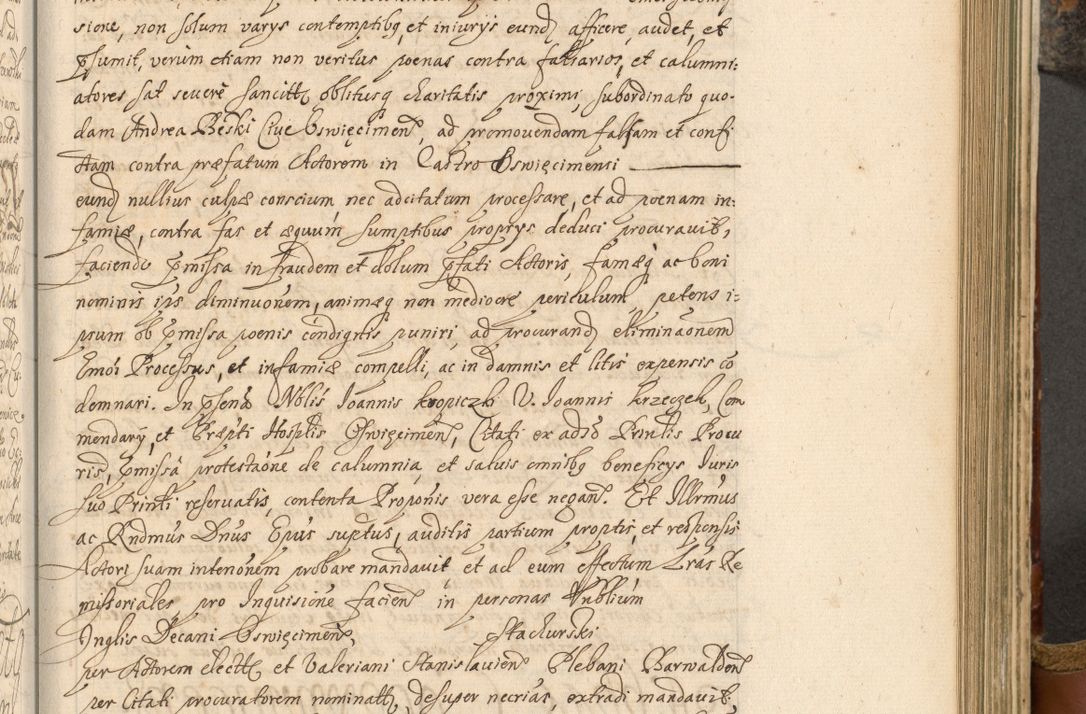 sione, non solum varys contemptibq, et iniurys eund, afficere, audet, et
psumit, verum etiam non veritus poenas contra falsarios, et calumni:
atores sat severè sancitt, oblitusq charitatis proximi, subordinato quo-
dam Andrea Beski Cive Oswięcimen, ad promovendam falsam et confi
ctam contra præfatum Actorem in Castro Oswięcimensi
eund nullius culpæ conscium nec adcitatum processare, et ad poenam in:
famiæ, contra fas et æquum sumptibus proprys deduci procuravit,
faciendo pmissa in fraudem et dolum pfati Actoris, famæq ac boni
nominis ips diminuonem, animæq non mediocre periculum, petens i:
psum ob pmissa poenis condignis puniri, ad procurand eliminaonem
Emoi Processus, et infamiæ compelli, ac in damnis et litis expensis co
demnari. In psenå Nblis Ioannis Kropiczk V. Ioannis Krzeczek, Com
mendary, et Præpti Hosplis Oswięcimen, Citati ex adso Prinlis Procu
ris, pmissâ protestaône de calumnia, et salvis omnibq beneficys Iuris
suo Prinli reservatis, contenta Proponis vera esse negan. Et Illrmus
ac Rndmus Dnus Epus suptus, auditis partium proptis, et responsis
Actori suam intenonem probare mandavit et ad eum effectum Lras Re
missoriales, pro Inquisione facien in personas Vnblium
Inglis Decani Oswięcimen, Stachurski
per Actorem electt, et Valeriani Stanislavien Plebani Barwalden
per Citati procuratorem nominatt, desuper necrias, extradi mandavit.